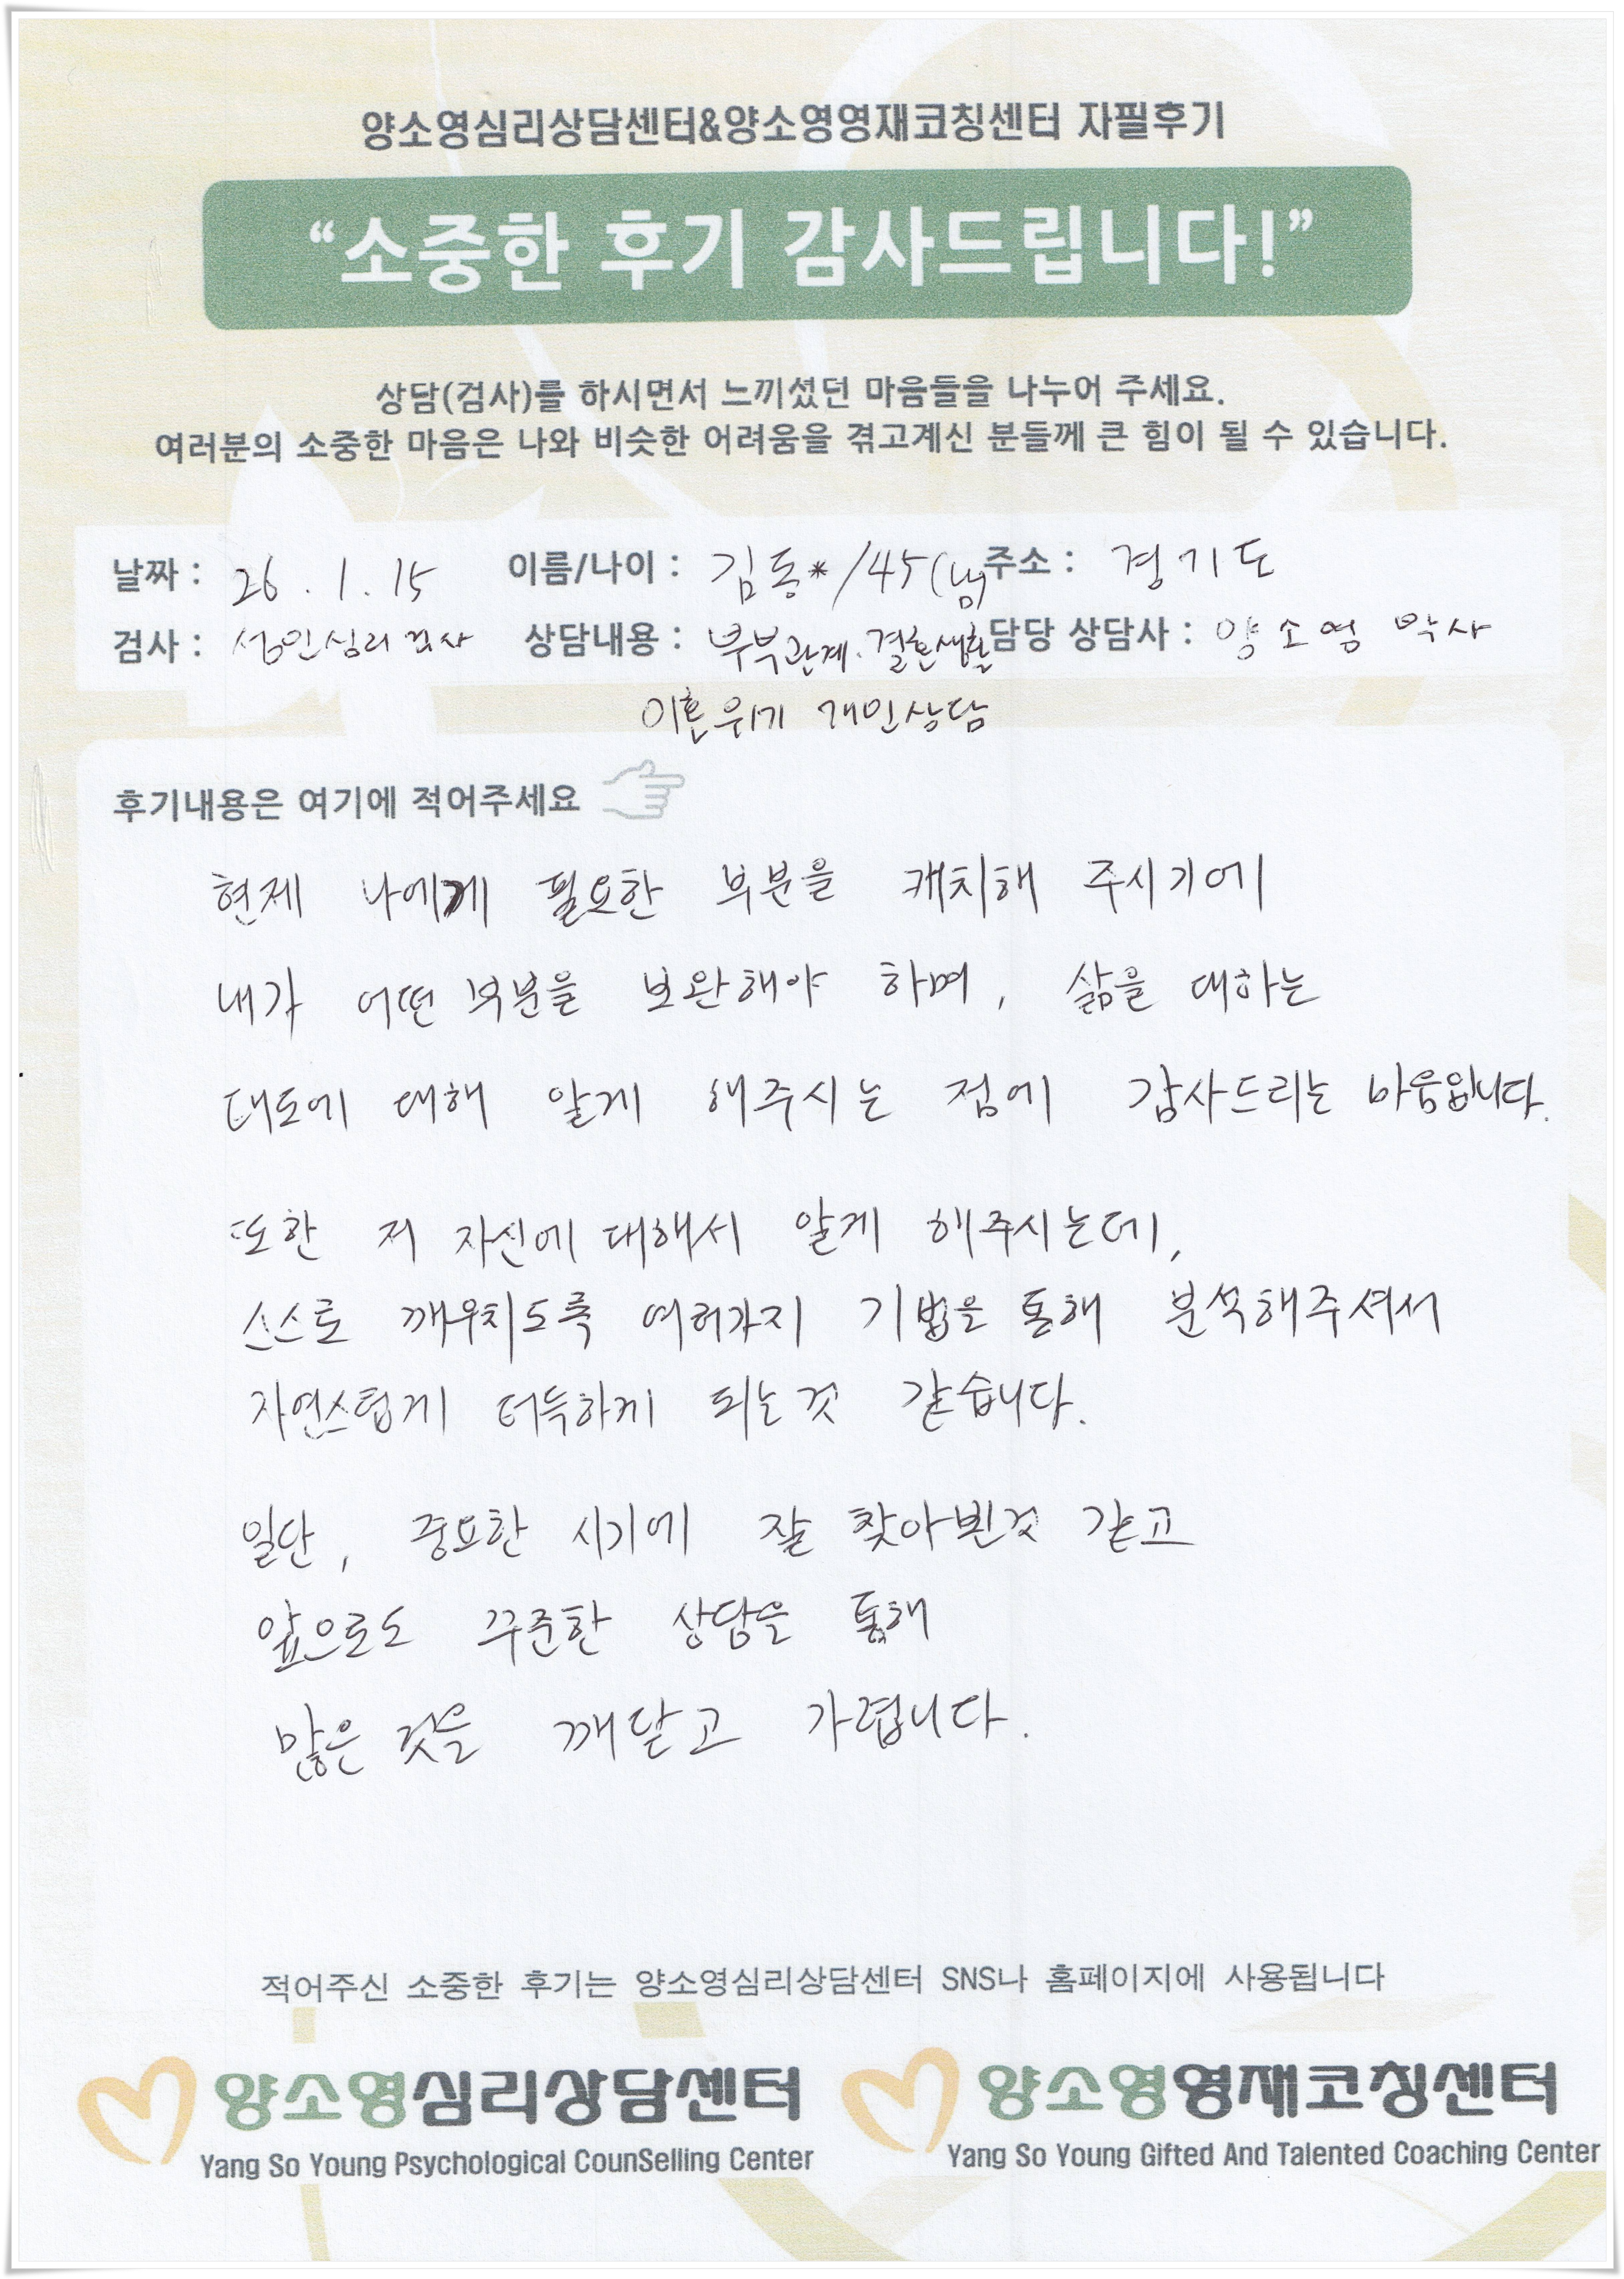 양소영심리상담센터&양소영영재코칭센터 자필후기
“소중한 후기 감사드립니다!”
상담(검사)를 하시면서 느끼셨던 마음들을 나누어 주세요.
여러분의 소중한 마음은 나와 비슷한 어려움을 겪고계신 분들께 큰 힘이 될 수 있습니다.
날짜 : 26 . 1 . 15 이름/나이 : 김동*/45(남) 주소 : 경기도
검사 : 성인심리검사 상담내용 : 부부관계. 결혼생활 담당 상담사 : 양소영 박사
이혼위기 개인상담
후기내용은 여기에 적어주세요
현제 나에게 필요한 부분을 캐치해 주시기에
내가 어떤 부분을 보완해야 하며, 삶을 대하는
태도에 대해 알게 해주시는 점에 감사드리는 마음입니다.
또한 저 자신에 대해서 알게 해주시는데,
스스로 깨우치도록 여러가지 기법을 통해 분석해주셔서
자연스럽게 터득하게 되는것 같습니다.
일단, 중요한 시기에 잘 찾아뵌것 같고
앞으로도 꾸준한 상담을 통해
많은 것을 깨닫고 가렵니다.
적어주신 소중한 후기는 양소영심리상담센터 SNS나 홈페이지에 사용됩니다
양소영심리상담센터 양소영영재코칭센터
Yang So Young Psychological CounSelling Center Yang So Young Gifted And Talented Coaching Center